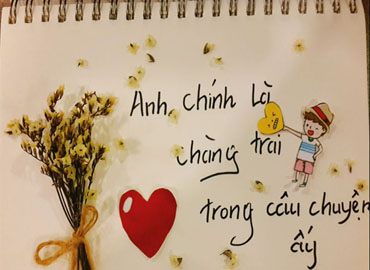 Anh chính là
chàng trai
trong câu chuyện
ấy